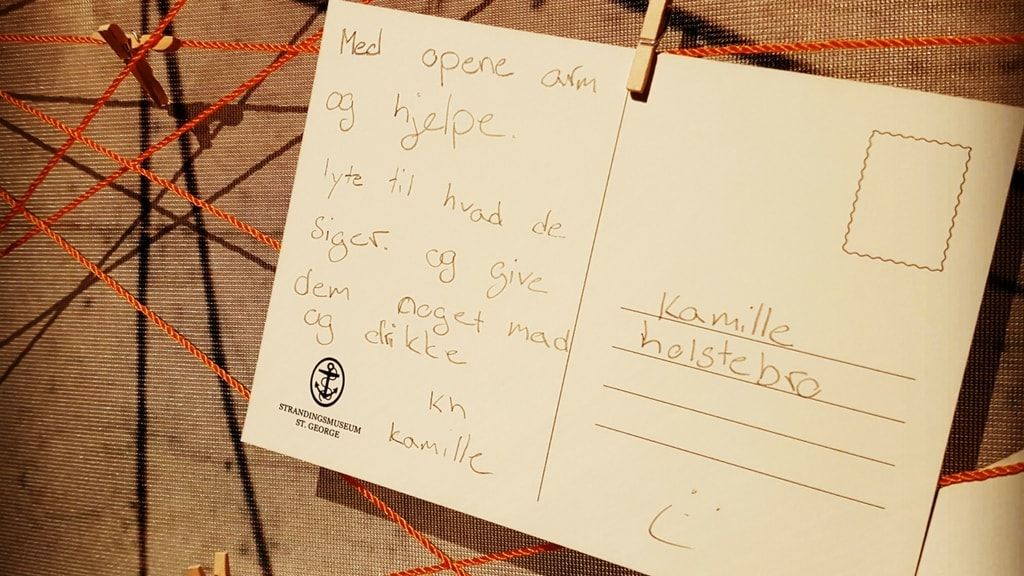 Med opene arm
og hjelpe.
lyte til hvad de
Siger. og give
dem noget mad
og drikke
kh
kamille
STRANDINGSMUSEUM
ST. GEORGE
Kamille
holstebro